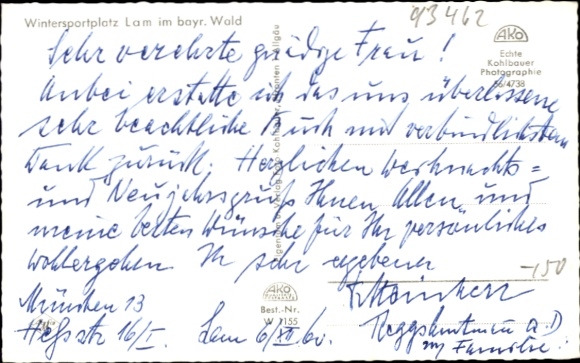 93462
Wintersportplatz Lam im bayr. Wald
AKO
Echte
Kohlbauer
Photographie
Sehr verehrte gnädige Frau!
Anbei erstatte ich das uns überlassene
sehr beachtliche Buch mit verbindlichstem
Dank zurück. Herzlichen Weihnachts=
und Neujahrsgruß Ihnen Allen und
meine besten Wünsche für Ihr persönliches
Wohlergehen. Ihr sehr ergebener
-150
AKO
Best.-Nr.
München 13
Heßstr 16/I. Lam 6/XII 60.
a.D
m/ Familie.